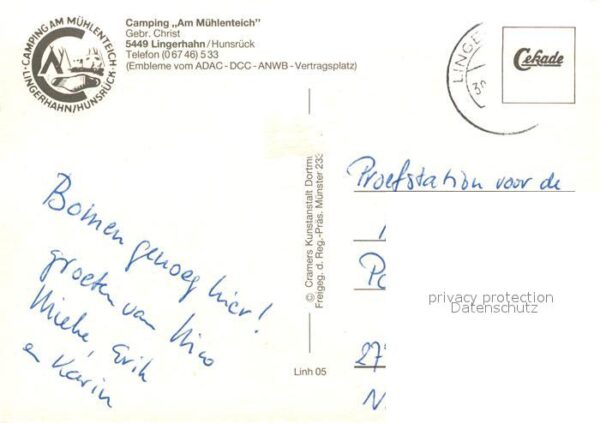 CAMPING AM MÜHLENTEICH
LINGERHAHN/HUNSRÜCK
Camping „Am Mühlenteich”
Gebr. Christ
5449 Lingerhahn/Hunsrück
Telefon (0 67 46) 5 33
(Embleme vom ADAC - DCC - ANWB - Vertragsplatz)
LINGE
30
Cekade
Bomen genoeg hier!
groeten van Nico
Mieke, Erik
en Karin
© Cramers Kunstanstalt Dortm
Freigeg. d. Reg.-Präs. Münster 233
Linh 05
Proefstation voor de
27
N.
privacy protection
Datenschutz